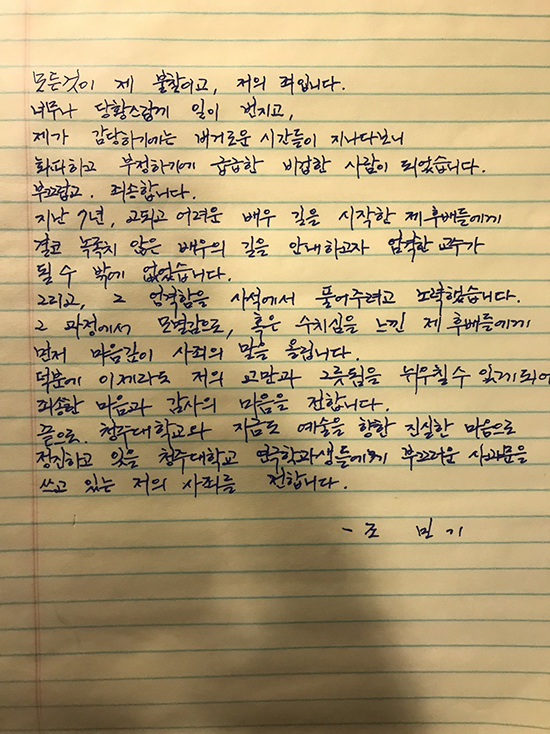 모든것이 제 불찰이고, 저의 죄입니다.
너무나 당황스럽게 일이 번지고,
제가 감당하기에는 버거로운 시간들이 지나다보니
회피하고 부정하기에 급급한 비겁한 사람이 되었습니다.
부끄럽고. 죄송합니다.
지난 7년, 고되고 어려운 배우 길을 시작한 제 후배들에게
결코 녹록치 않은 배우의 길을 안내하고자 엄격한 교수가
될 수 밖에 없었습니다.
그리고, 그 엄격함을 사석에서 풀어주려고 노력했습니다.
그 과정에서 모멸감으로, 혹은 수치심을 느낀 제 후배들에게
먼저 마음깊이 사죄의 말을 올립니다.
덕분에 이제라도 저의 교만과 그릇됨을 뉘우칠 수 있게 되어
죄송한 마음과 감사의 마음을 전합니다.
끝으로. 청주대학교와 지금도 예술을 향한 진실한 마음으로
정진하고 있을 청주대학교 연극학과생들에게 부끄러운 사과문을
쓰고 있는 저의 사죄를 전합니다.
- 조 민 기